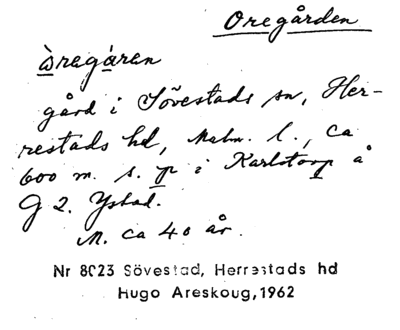 Oregården
òregàren
gård i Sövestads sn, Her-
restads hd, Malm. l., ca
600 m. s. p i Karlstorp å
G 2. Ystad.
M. ca 40 år.
Nr 8023 Sövestad, Herrestads hd
Hugo Areskoug, 1962